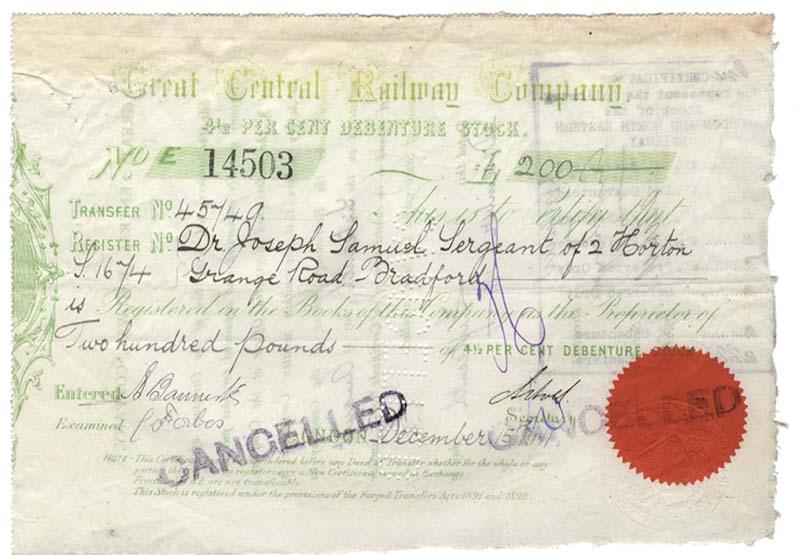 Great Central Railway Company,
4½ PER CENT DEBENTURE STOCK.
No E 14503 £ 200
TRANSFER No 45749. This is to Certify that
REGISTER No Dr. Joseph Samuel Sergeant of 2 Horton
S. 1674 Grange Road Bradford
is Registered on the Books of this Company as the Proprietor of
Two hundred pounds of 4½ PER CENT DEBENTURE STOCK
Entered
Examined Forbes Secretary
LONDON December
CANCELLED
CANCELLED
NOTE - This Certificate must be surrendered before any Deed of Transfer whether for the whole or any
a New Certificate issued in Exchange
are not transferable.
This Stock is registered under the provisions of the Forged Transfers Acts 1891 and 1892.